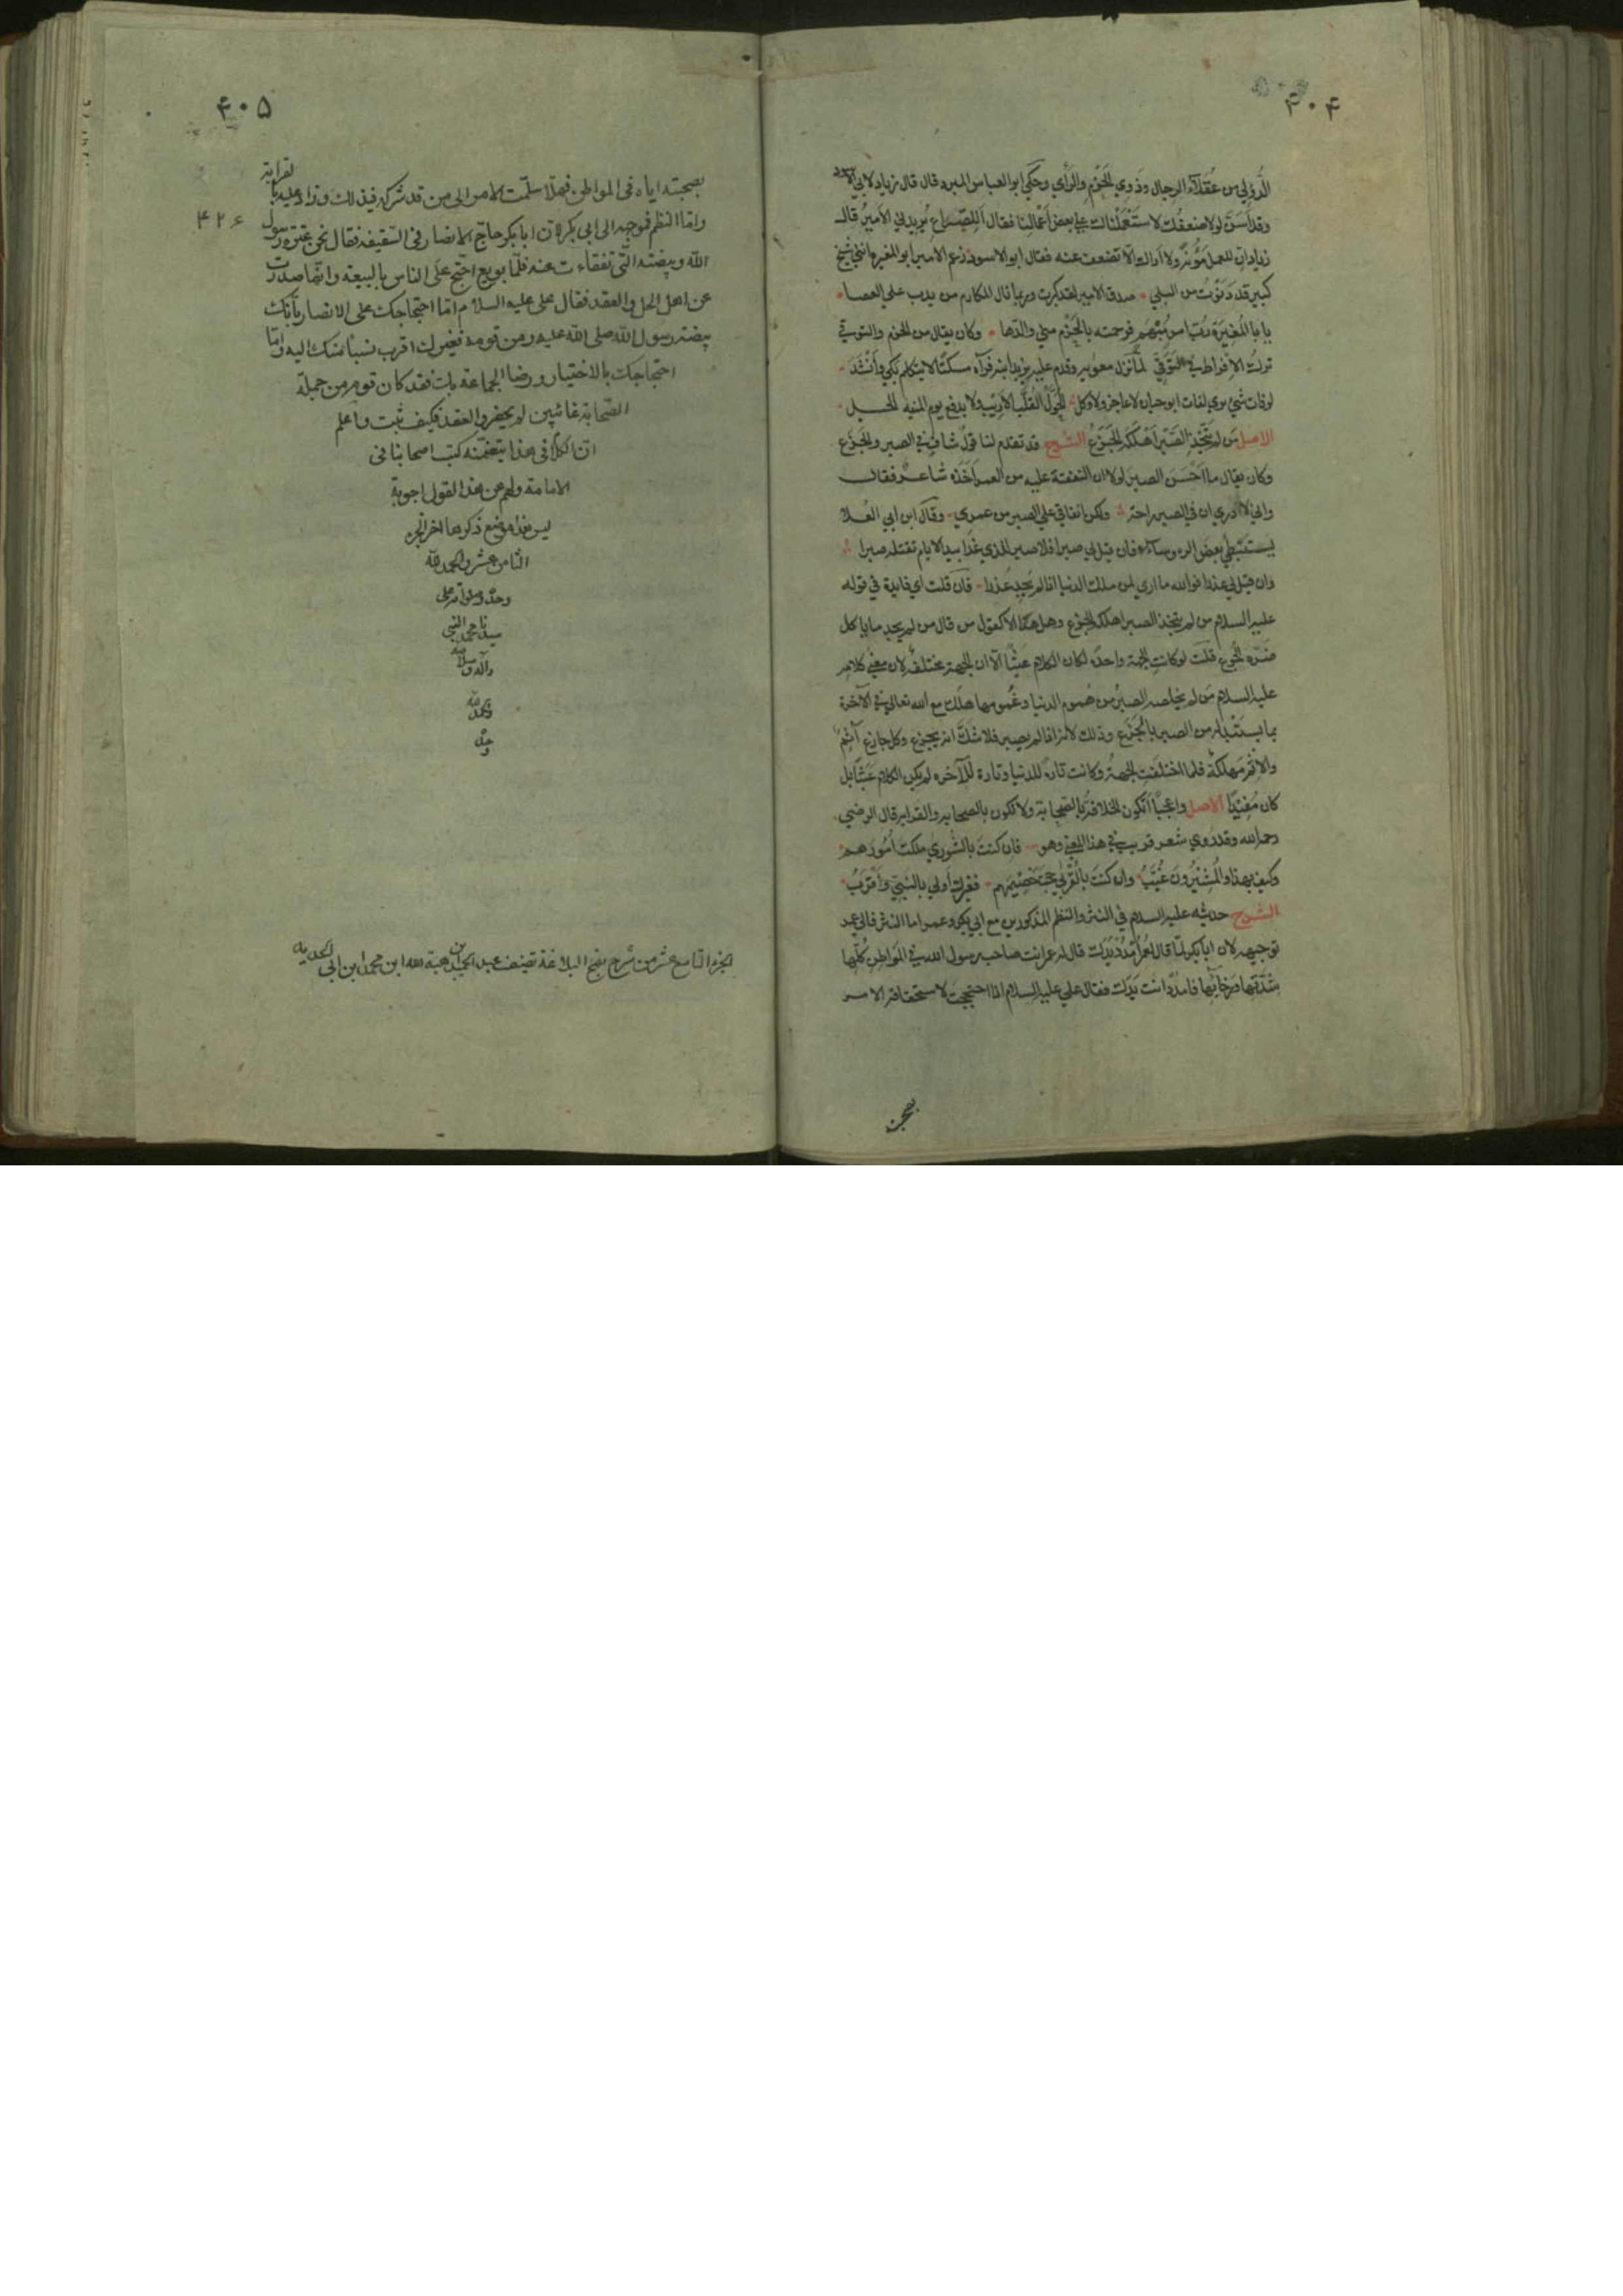 ۴۰۴
الدؤلي من عقلاء الرجال وذوي الحزم والرأي وحكي ابو العباس المبرد قال قال زياد لابي الاسود
وقد اسن لولا ضعفك لاستعملناك علي بعض اعمالنا فقال اللصراع يريدني الامير قال
زياد ان للعمل مؤنة ولا اراك الا تضعف عنه فقال ابو الاسود زعم الامير ابو المغيرة انني شيخ
كبير قد دنوت من البلي صدق الامير لقد كبرت وربما نال المكارم من يدب علي العصا
يابا المغيرة رب امر مبهم فرجته بالحزم مني والدها وكان يقال من الحزم والتوقي
ترك الافراط في التوقي لما نزل معوية وقدم عليه يزيد ابنه فرآه مسكتا لا يتكلم بكي وانشد
لو فات شيء يري لفات ابو حيان لا عاجز ولا وكل الحول القلب الاريب ولا يدفع يوم المنية الحيل
الاصل من لم ينجه الصبر اهلكه الجزع الشرح قد تقدم لنا قول شاف في الصبر والجزع
وكان يقال ما احسن الصبر لولا ان النفقة عليه من العمر اخذه شاعر فقال
واني لادري ان في الصبر راحة ولكن انفاقي علي الصبر من عمري وقال ابن ابي العلا
يستبطي بعض الروساء فان قيل لي صبرا فلا صبر للذي غدا بيد الايام تقتله صبرا
وان قيل لي عذرا فوالله ما اري لمن ملك الدنيا اذا لم يجد عذرا فان قلت اي فايدة في قوله
عليه السلام من لم ينجه الصبر اهلكه الجزع وهل هذا الا كقول من قال من لم يجد ما ياكل
ضره الجوع قلت لو كانت الجهة واحدة لكان الكلام عبثا الا ان الجهة مختلفة لان معني كلامه
عليه السلام من لم يخلصه الصبر من هموم الدنيا وغمومها هلك مع الله تعالي في الآخرة
بما يستبدله من الصبر بالجزع وذلك لانه اذا لم يصبر فلا شك انه يجزع وكل جازع آثم
والاثم مهلكة فلما اختلفت الجهة وكانت تارة للدنيا وتارة للآخرة لم يكن الكلام عبثا بل
كان مفيدا الاصل واعجبا اتكون الخلافة بالصحابة ولا تكون بالصحابة والقرابة قال الرضي
رحمه الله وقد روي شعر قريب في هذا المعني وهو فان كنت بالشوري ملكت امورهم
وكيف بهذا والمشيرون غيب وان كنت بالقربي حججت خصيمهم فغيرك اولي بالنبي واقرب
الشرح حديثه عليه السلام في النثر والنظم المذكورين مع ابي بكر وعمر اما النثر فالي عمر
توجيهه لان ابا بكر لما قال لعمر امدد يدك قال له عمر انت صاحب رسول الله في المواطن كلها
شدتها ورخائها فامدد انت يدك فقال علي عليه السلام اذا احتججت لاستحقاقه الامر
بصحبته
۴۰۵
بصحبته اياه في المواطن فهلا سلمت الامر الى من قد شركه في ذلك وزاد عليه بالقرابة
۴۲۶
واما النظم فموجه الى ابى بكر لان ابا بكر حاج الانصار فى السقيفة فقال نحن عترة رسول
الله وبيضته التى تفقاءت عنه فلما بويع احتج على الناس بالبيعة وانها صدرت
عن اهل الحل والعقد فقال على عليه السلام اما احتجاجك على الانصار بأنك
بيضة رسول الله صلى الله عليه ومن قومه فغيرك اقرب نسبا منك اليه واما
احتجاجك بالاختيار ورضا الجماعة بك فقد كان قوم من جملة
الصحابة غائبين لم يحضروا العقد فكيف ثبت واعلم
ان الكلام فى هذا يتضمنه كتب اصحابنا فى
الامامة ولهم عن هذا القول اجوبة
ليس هذا موضع ذكرها آخر الجزء
الثامن عشر والحمد لله
وحده وصلواته على
سيدنا محمد النبى
وآله وسلامه
والحمد لله
وحده
الجزء التاسع عشر من شرح نهج البلاغة تصنيف عبد الحميد بن هبة الله ابن محمد ابن ابي الحديد